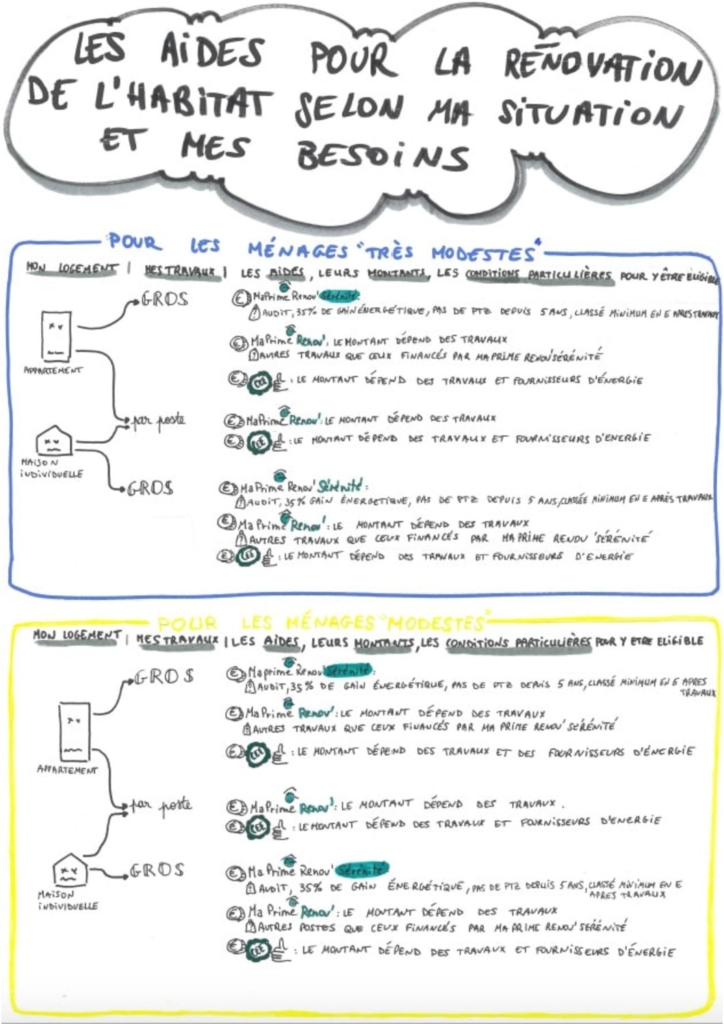 LES AIDES POUR LA RÉNOVATION
DE L'HABITAT SELON MA SITUATION
ET MES BESOINS
POUR LES MÉNAGES "TRÈS MODESTES"
MON LOGEMENT | MES TRAVAUX | LES AIDES, LEURS MONTANTS, LES CONDITIONS PARTICULIÈRES POUR Y ÊTRE ELIGIBLE
GROS
€ MaPrime Renov' Sérénité:
AUDIT, 35% DE GAIN ÉNERGÉTIQUE, PAS DE PTZ DEPUIS 5 ANS, CLASSÉ MINIMUM EN E APRES TRAVAUX
€ MaPrime Renov': LE MONTANT DÉPEND DES TRAVAUX
AUTRES TRAVAUX QUE CEUX FINANCÉS PAR MA PRIME RENOV'SÉRÉNITÉ
€ CEE : LE MONTANT DÉPEND DES TRAVAUX ET FOURNISSEURS D'ÉNERGIE
APPARTEMENT
par poste
€ MaPrime Renov': LE MONTANT DÉPEND DES TRAVAUX
€ CEE : LE MONTANT DÉPEND DES TRAVAUX ET FOURNISSEURS D'ENERGIE
MAISON
INDIVIDUELLE
GROS
€ MaPrime Renov' Sérénité:
AUDIT, 35% GAIN ÉNERGETIQUE, PAS DE PTZ DEPUIS 5 ANS, CLASSÉE MINIMUM EN E APRÈS TRAVAUX
€ MaPrime Renov': LE MONTANT DÉPEND DES TRAVAUX
AUTRES TRAVAUX QUE CEUX FINANCÉS PAR MA PRIME RENOV'SÉRÉNITÉ
€ CEE : LE MONTANT DÉPEND DES TRAVAUX ET FOURNISSEURS D'ENERGIE
POUR LES MÉNAGES "MODESTES"
MON LOGEMENT | MES TRAVAUX | LES AIDES, LEURS MONTANTS, LES CONDITIONS PARTICULIÈRES POUR Y ETRE ELIGIBLE
GROS
€ Maprime Renov' Sérénité:
AUDIT, 35% DE GAIN ÉNERGÉTIQUE, PAS DE PTZ DEPUIS 5 ANS, CLASSÉ MINIMUM EN E APRES
TRAVAUX
€ MaPrime Renov': LE MONTANT DÉPEND DES TRAVAUX
AUTRES TRAVAUX QUE CEUX FINANCÉS PAR MA PRIME RENOV' SÉRÉNITÉ
€ CEE : LE MONTANT DÉPEND DES TRAVAUX ET DES FOURNISSEURS D'ÉNERGIE
APPARTEMENT
par poste
€ MaPrime Renov': LE MONTANT DÉPEND DES TRAVAUX.
€ CEE : LE MONTANT DÉPEND DES TRAVAUX ET FOURNISSEURS D'ENERGIE
MAISON
INDIVIDUELLE
GROS
€ Ma Prime Renov' Sérénité
AUDIT, 35% DE GAIN ÉNERGÉTIQUE, PAS DE PTZ DEPUIS 5 ANS, CLASSÉ MINIMUM EN E
APRES TRAVAUX
€ Ma Prime Renov': LE MONTANT DÉPEND DES TRAVAUX
AUTRES POSTES QUE CEUX FINANCÉS PAR MA PRIME RENOV'SÉRÉNITÉ
€ CEE : LE MONTANT DÉPEND DES TRAVAUX ET FOURNISSEURS D'ÉNERGIE